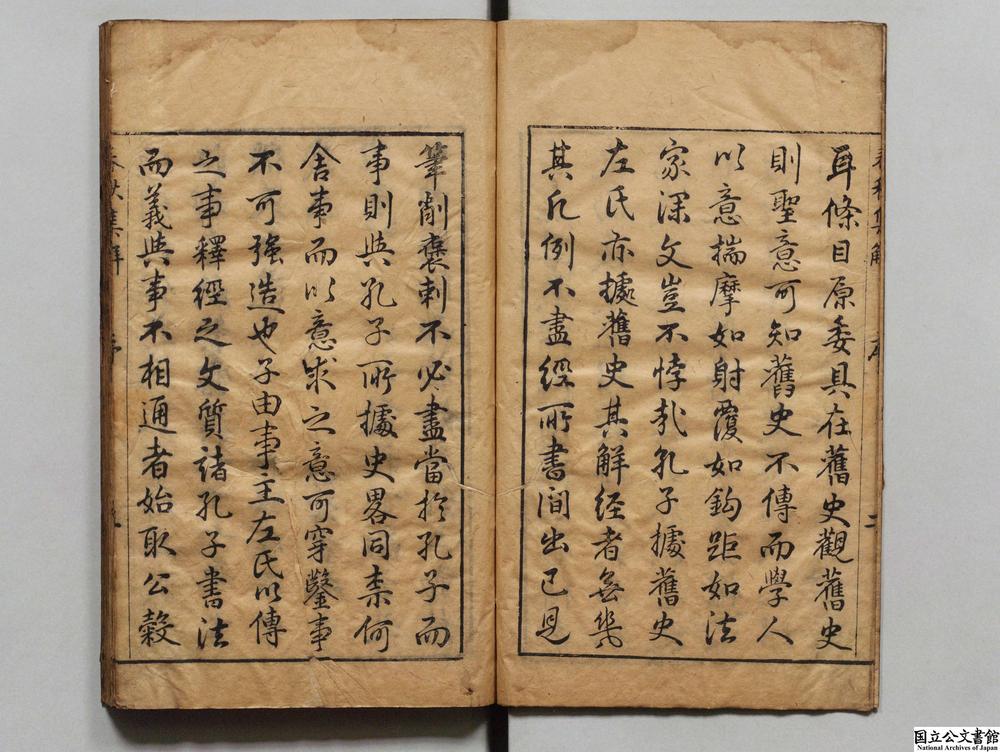 耳條目原委具在舊史觀舊史
則聖意可知舊史不傳而學人
以意揣摩如射覆如鈎距如法
家深文豈不悖哉孔子據舊史
左氏亦據舊史其解經者無幾
其凡例不盡經所書間出己見
筆削褒刺不必盡當於孔子而
事則與孔子所據史畧同柰何
舍事而以意求之意可穿鑿事
不可強造也子由事主左氏以傳
之事釋經之文質諸孔子書法
而義與事不相通者始取公糓
春秋集解
序
二
国立公文書館
National Archives of Japan